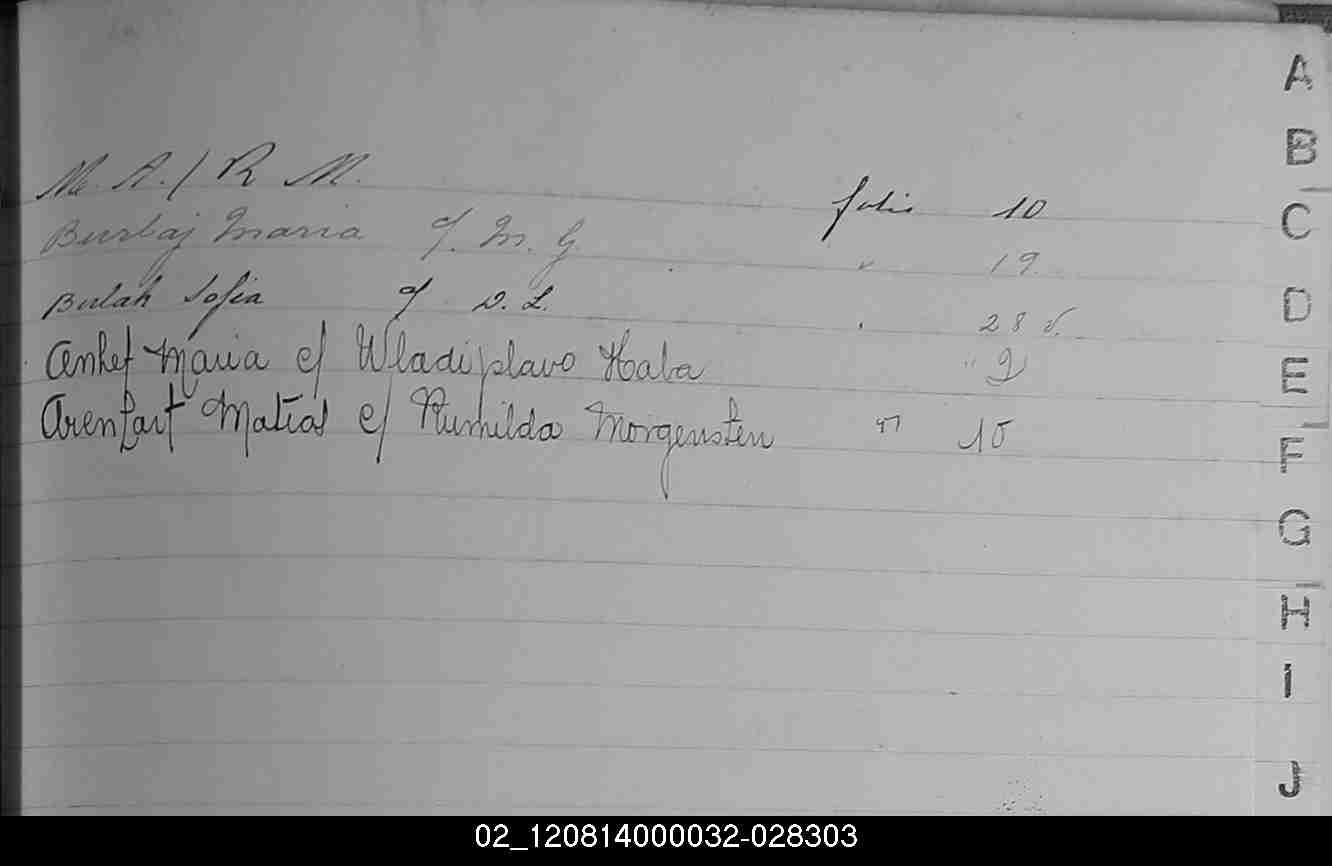 M. A. / R M. folio 10
Burbaj Maria c/. M. G. " 19.
Bulak Sofia c/ D. L. " 28 v.
Anhef Maria c/ Wladislavo Haba " 9
Arenfart Matias c/ Rumilda Morgensten " 15
A
B
C
D
E
F
G
H
I
J
02_120814000032-028303